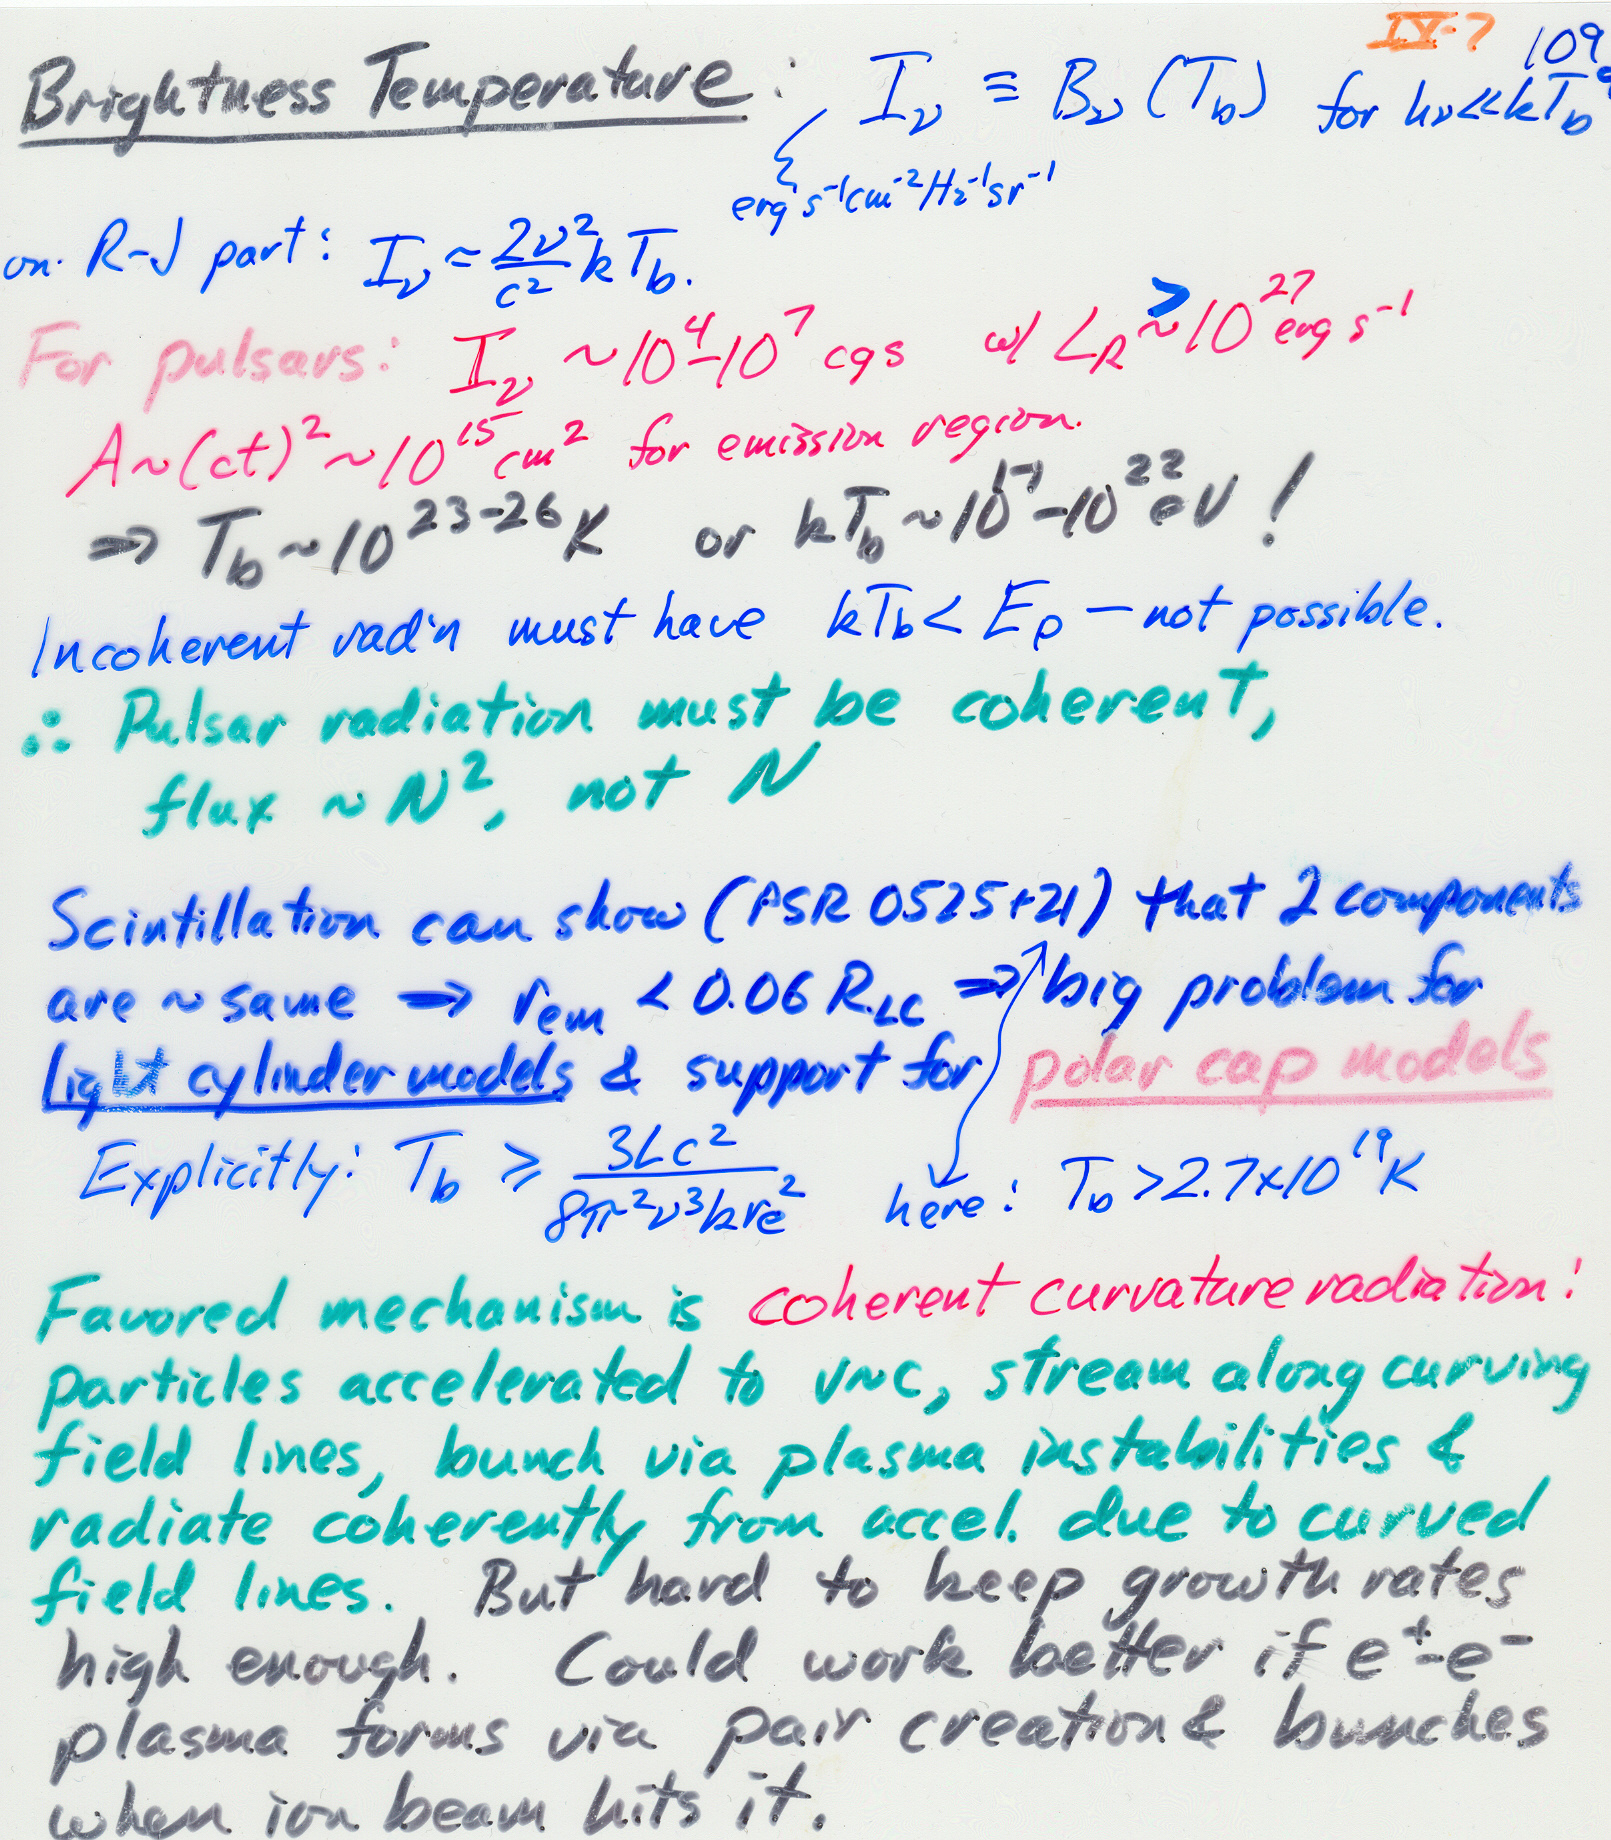 IV-7 109
Brightness Temperature: I_ν ≡ B_ν (T_b) for hν<<kT_b
erg s⁻¹cm⁻²Hz⁻¹sr⁻¹
on R-J part: I_ν ≈ 2ν²/c² k T_b.
For pulsars: I_ν ~10⁴-10⁷ cgs w/ L_R ≳ 10²⁷ erg s⁻¹
A~(ct)²~10¹⁵cm² for emission region.
⇒ T_b~10²³⁻²⁶K or kT_b~10¹⁹-10²²eV!
Incoherent rad'n must have kT_b< E_p — not possible.
∴ Pulsar radiation must be coherent,
flux ~ N², not N
Scintillation can show (PSR 0525+21) that 2 components
are ~ same ⇒ r_em < 0.06 R_LC ⇒ big problem for
light cylinder models & support for polar cap models
Explicitly: T_b ≥ 3Lc²/8π²ν³kr_e² here: T_b >2.7×10¹⁹K
Favored mechanism is coherent curvature radiation:
particles accelerated to v~c, stream along curving
field lines, bunch via plasma instabilities &
radiate coherently from accel. due to curved
field lines. But hard to keep growth rates
high enough. Could work better if e⁺-e⁻
plasma forms via pair creation & bunches
when ion beam hits it.